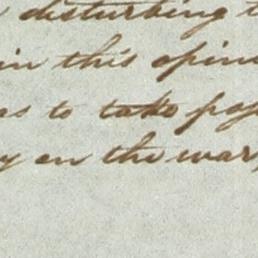 disturbing t
in this opin
as to take pos
y on the war,